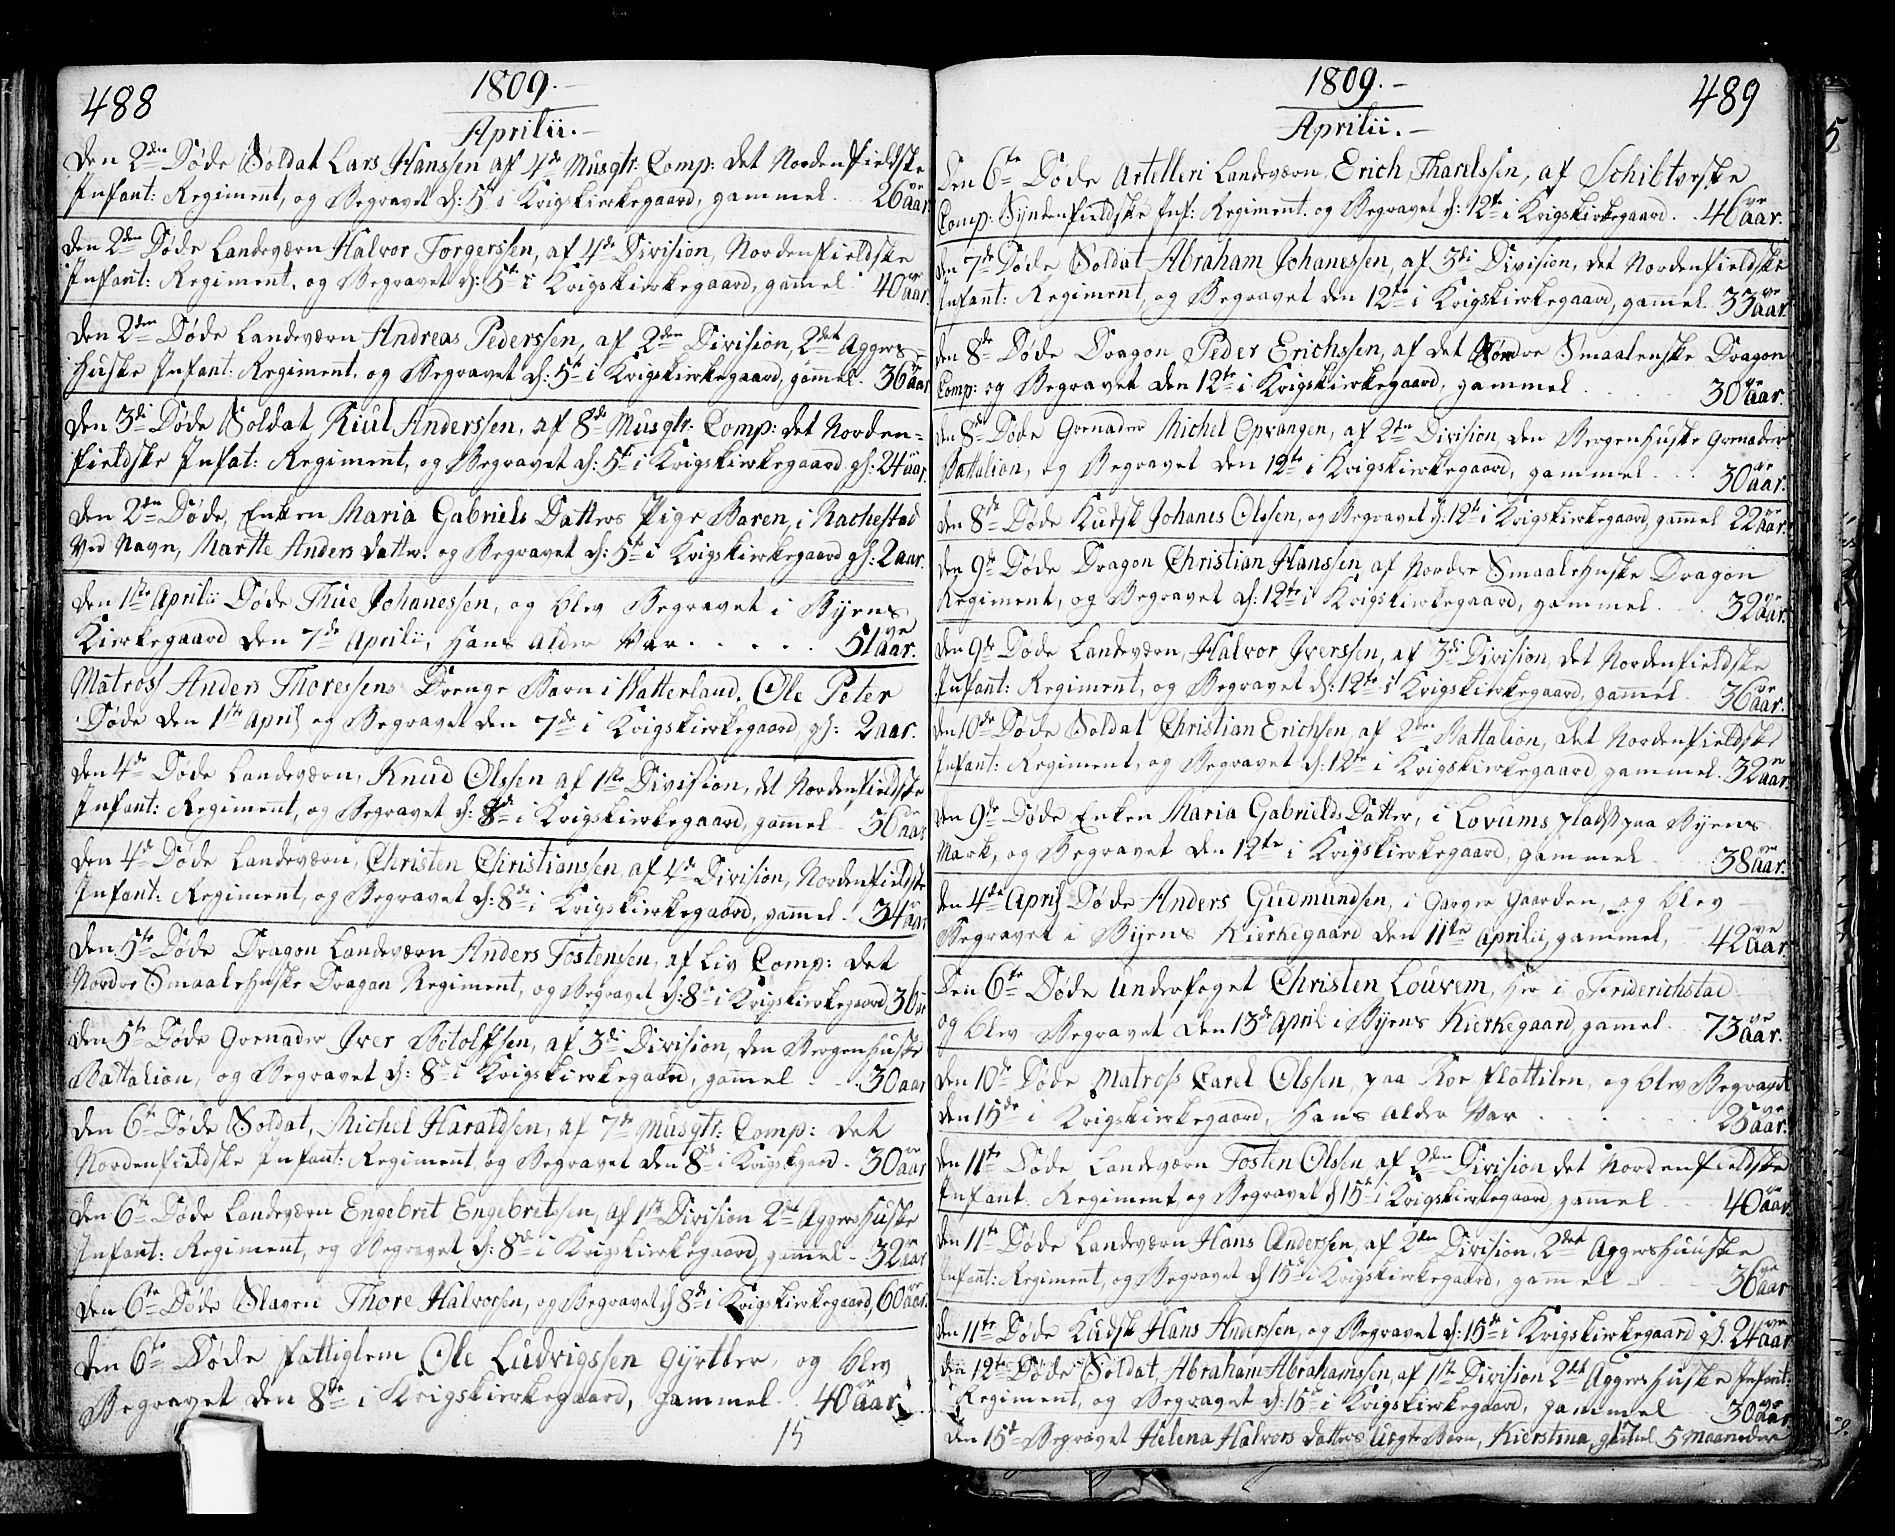 488
1809.-
Aprilii.-
Den 2den Døde Soldat Lars Hanssen af 4de Musqtr: Comp: det Nordenfieldske
Infant: Regiment, og Begravet d: 5te i Krigskirkegaard, gammel. 26ve aar
Den 2den Døde Landeværn Halvor Torgerssen, af 4de Division, Nordenfieldske
Infant: Regiment, og Begravet d: 5te i Krigskirkegaard, gamel 40 aar.
Den 2den Døde Landeværn Andreas Pederssen, af 2den Division, 2det Aggers-
huske Infant: Regiment, og Begravet d: 5te i Krigskirkegaard, gammel. 36 aar
Den 3di Døde Soldat, Kiul Anderssen, af 8de Musqtr: Comp: det Norden=
fieldske Infat: Regiment, og Begravet d: 5te i Krigskirkegaard gl: 24 aar.
Den 2den Døde, Enken Maria Gabriels Datters Pige Baren, i Rachestad
Ved Navn, Marthe Anders datter. og Begravet d: 5te i Krigskirkegaard gl: 2 aar.
Den 1ste Aprilii Døde Thue Johanessen, og blev Begravet i Byens
Kirkegaard den 7de Aprilii, hans alder Var . . . . . 51ve aar.
Matros Anders Thoressens Drenge Barn i Vatterland, Ole Peter
Døde den 1ste April og Begravet den 7de i Krigskirkegaard, gl: 2 aar.
Den 4de Døde Landeværn, Knud Olssen af 1ste Division, det Nordenfieldske
Infant: Regiment, og Begravet d: 8de i Krigskirkegaard, gammel - 36 aar
Den 4de Døde Landeværn, Christen Christianssen, af 4de Division, Nordenfieldske
Infant: Regiment, og Begravet d: 8de i Krigskirkegaard, gammel - 34 aar
Den 5te Døde Dragon Landeværn Anders Tostensen, af Liv Comp: det
Nordre Smaalehnske Dragon Regiment, og Begravet d: 8de i Krigskirkegaard 36
Den 5te Døde Grenader Iver Botolfsen, af 3di Division, den Bergenhuske
Battalion, og Begravet d: 8de i Krigskirkegaard, gammel - - 30 aar
Den 6te Døde Soldat, Michel Haraldsen, af 7de Musqtr: Comp: det
Nordenfieldske Infant: Regiment, og Begravet den 8de i Krigskgaard - 30ve aar
Den 6te Døde Landeværn Engebret Engebretsen, af 1ste Division 2det Aggershuske
Infant: Regiment, og Begravet d: 8de i Krigskirkegaard, gammel - 32 aar
Den 6te Døde Slaven Thore Halvorsen, og Begravet d 8de i Krigskirkegaard, 60 aar.
Den 6te Døde fattiglem Ole Ludvigssen Gyrtler, og blev
Begravet den 8de i Krigskirkegaard, gammel 40 aar.
15
489
1809.-
Aprilii.-
Den 6te Døde Artelleri Landeværn, Erich Tharelssen, af Schibtveske
Comp: Syndenfieldske Inf: Regiment. og Begravet d: 12te i Krigskirkegaard. 46ve aar.
Den 7de Døde Soldat Abraham Johanessen, af 3di Division, det Nordenfieldske
Infant: Regiment, og Begravet den 12te i Krigskirkegaard, gamel. 33ve aar.
Den 8de Døde Dragon Peder Erichssen, af det Søndre Smaalenske Dragon
Comp: og Begravet den 12te i Krigskirkegaard, gammel . . . 30ve aar.
Den 8de Døde Grenader Michel Opvangen, af 2den Division, den Bergenhuske Grenader
Battalion, og Begravet den 12te i Krigskirkegaard, gammel . . 30ve aar.
Den 8de Døde Kudsk Johanes Olssen, og Begravet d: 12te i Krigskirkegaard, gammel 22ve aar
Den 9de Døde Dragon Christian Hanssen, af Nordre Smaalehnske Dragon
Regiment, og Begravet d: 12te i Krigskirkegaard, gammel . . 32ve aar.
Den 9de Døde Landeværn, Halvor Iverssen, af 3di Division, det Nordenfieldske
Infant: Regiment, og Begravet d: 12te i Krigskirkegaard, gammel. 36ve aar.
Den 10de Døde Soldat Christian Erichsen, af 2den Battalion, det Nordenfieldske
Infant: Regiment, og Begravet d: 12te i Krigskirkegaard, gammel. 32 aar.
Den 9de Døde Enken Maria Gabrields Datter, i Lovums plads paa Byens
Mark, og Begravet den 12te i Krigskirkegaard, gammel . . 38ve aar.
Den 4de April Døde Anders Gudmundsen, i Garver Gaarden, og blev
Begravet i Byens Kierkegaard den 11te Aprilii, gammel, - 42ve aar
Den 6te Døde Underfoget Christen Louvem, her i Friderichstad
og blev Begravet den 13de April i Byens Kierkegaard, gamel. 73ve aar.
Den 10de Døde Matros Carel Olssen, paa Roe flottilen, og blev Begravet
den 15de i Krigskirkegaard, hans alder Var . . . 25ve aar.
Den 11te Døde Landeværn Tosten Olsen, af 2den Division det Nordenfieldske
Infant. Regiment, og Begravet d 15de i Krigskirkegaard, gamel . . 40ve aar.
Den 11te Døde Landeværn Hans Andersen, af 2den Division, 2det Aggershuuske
Infant: Regiment, og Begravet d 15de i Krigskirkegaard, gammel - 36ve aar
Den 11te Døde Kudsk Hans Anderssen, og Begravet d: 15de i Krigskirkegaard gl. 24ve aar
Den 12te Døde Soldat, Abraham Abrahamssen, af 1ste Division 2det Aggershuske Infant:
Regiment, og Begravet d: 15de i Krigskirkegaard, gammel 30ve aar
Den 15de Begravet Helena Halvors datters Uægte Barn, Kierstina, gamel 5 Maaneder